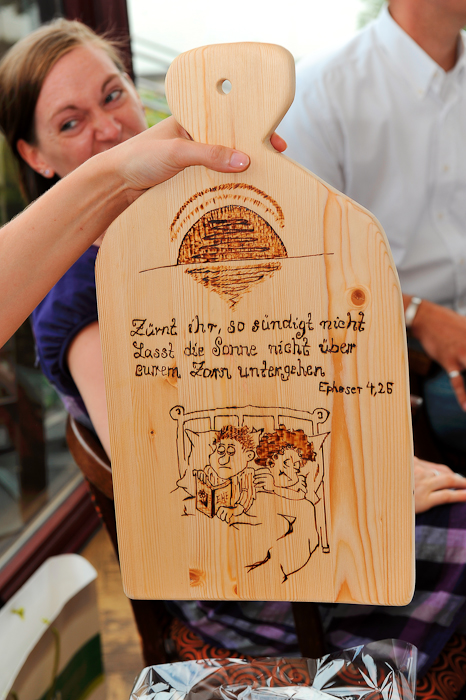 Zürnt ihr, so sündigt nicht
Lasst die Sonne nicht über
eurem Zorn untergehen
Epheser 4,26